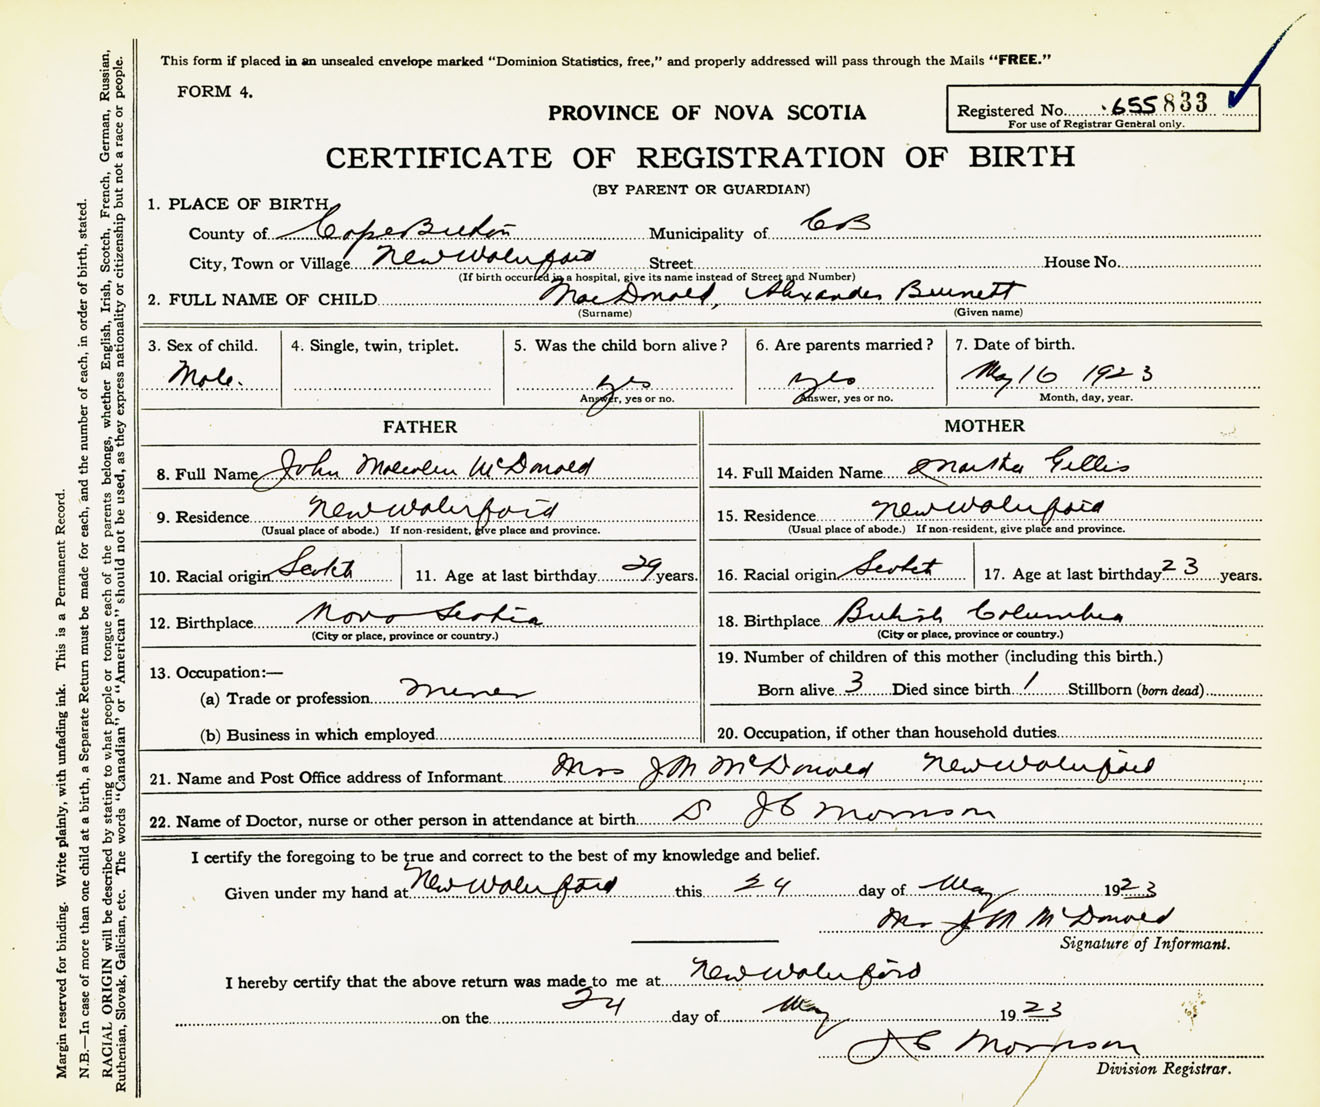 This form if placed in an unsealed envelope marked "Dominion Statistics, free," and properly addressed will pass through the Mails "FREE."
FORM 4.
PROVINCE OF NOVA SCOTIA
Registered No. 655833
For use of Registrar General only.
CERTIFICATE OF REGISTRATION OF BIRTH
(BY PARENT OR GUARDIAN)
1. PLACE OF BIRTH
County of Cape Breton Municipality of CB
City, Town or Village New Waterford Street House No.
(If birth occurred in a hospital, give its name instead of Street and Number)
2. FULL NAME OF CHILD MacDonald, Alexander Burnett
(Surname) (Given name)
3. Sex of child. 4. Single, twin, triplet. 5. Was the child born alive? 6. Are parents married? 7. Date of birth.
Male. yes yes May 16 1923
Answer, yes or no. Answer, yes or no. Month, day, year.
FATHER MOTHER
8. Full Name John Malcolm McDonald 14. Full Maiden Name Martha Gillis
9. Residence New Waterford 15. Residence New Waterford
(Usual place of abode.) If non-resident, give place and province. (Usual place of abode.) If non-resident, give place and province.
10. Racial origin Scotch 11. Age at last birthday 29 years. 16. Racial origin Scotch 17. Age at last birthday 23 years.
12. Birthplace Nova Scotia 18. Birthplace British Columbia
(City or place, province or country.) (City or place, province or country.)
13. Occupation:— 19. Number of children of this mother (including this birth.)
(a) Trade or profession Miner Born alive 3 Died since birth 1 Stillborn (born dead)
(b) Business in which employed 20. Occupation, if other than household duties
21. Name and Post Office address of Informant Mrs J M McDonald New Waterford
22. Name of Doctor, nurse or other person in attendance at birth J C Morrison
I certify the foregoing to be true and correct to the best of my knowledge and belief.
Given under my hand at New Waterford this 24 day of May 1923
Mrs J M McDonald
Signature of Informant.
I hereby certify that the above return was made to me at New Waterford
on the 24 day of May 1923
J C Morrison
Division Registrar.
Margin reserved for binding. Write plainly, with unfading ink. This is a Permanent Record.
N.B.—In case of more than one child at a birth, a Separate Return must be made for each, and the number of each, in order of birth, stated.
RACIAL ORIGIN will be described by stating to what people or tongue each of the parents belongs, whether English, Irish, Scotch, French, German, Russian,
Ruthenian, Slovak, Galician, etc. The words "Canadian" or "American" should not be used, as they express nationality or citizenship but not a race or people.